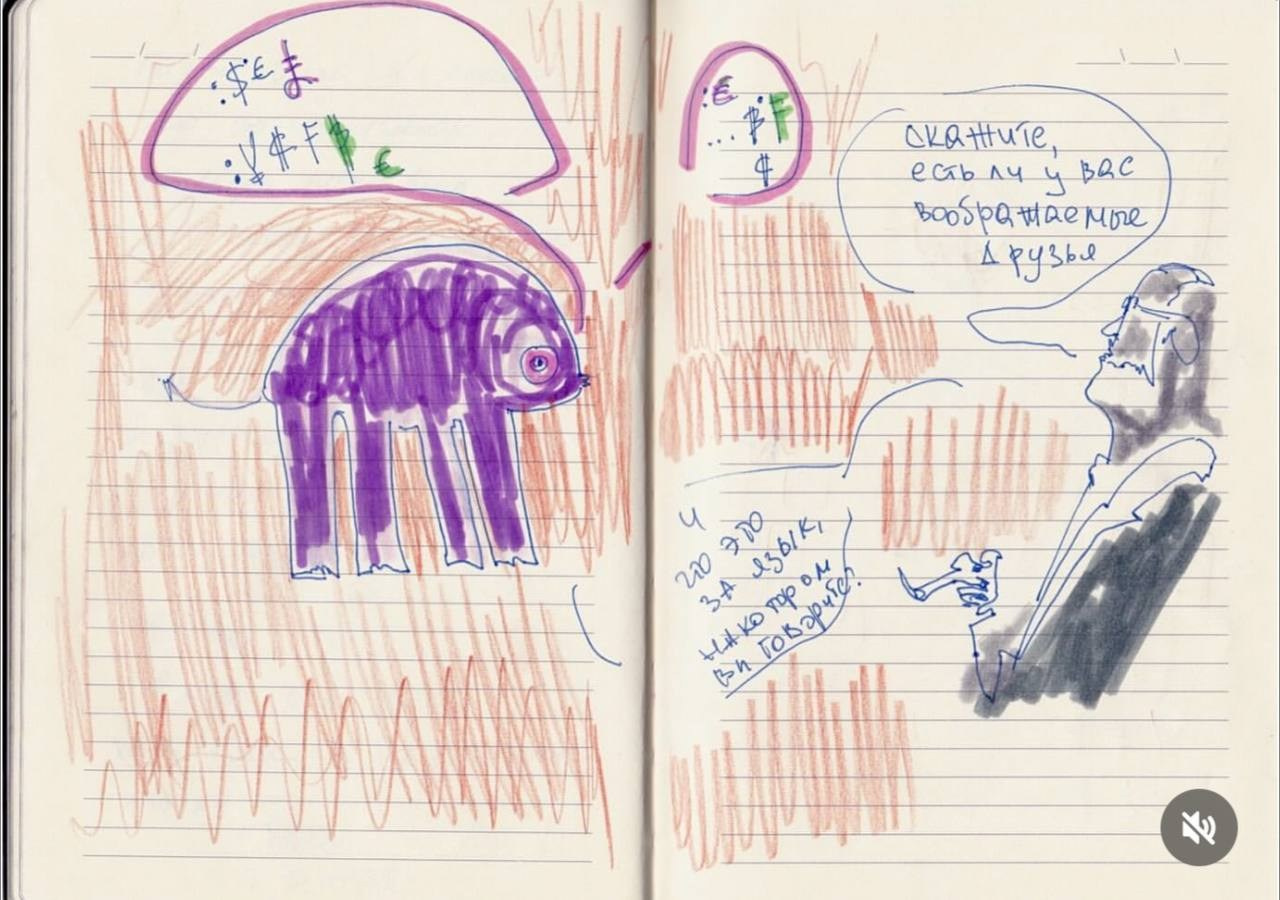 :$€ ⱡ
:¥$F$ €
:€ :$F
...
$
скажите,
есть ли у вас
воображаемые
друзья
И
что это
за язык,
на котором
вы говорите?